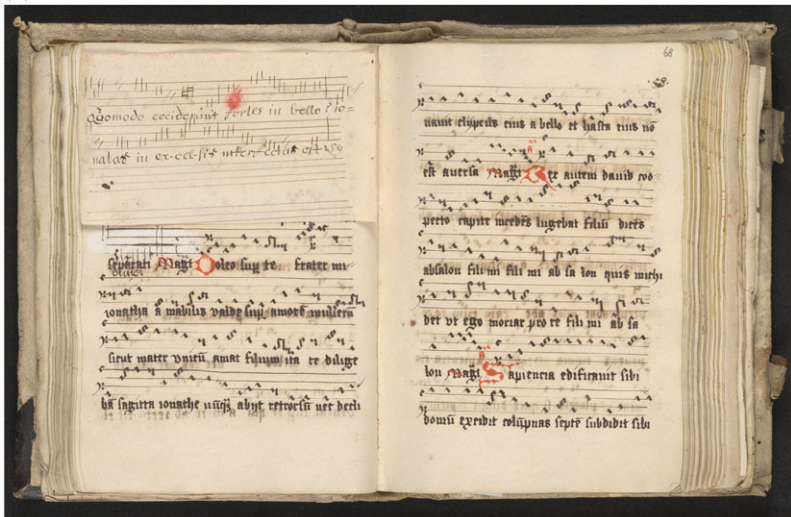 Quomodo ceciderunt fortes in bello? io=
natas in ex-cel-sis est
separati Magt Doleo sup te frater mi
ionatha a mabilis valde sup amorē mulierū
sicut mater vnicū amat filium ita te dilige
bā sagitta ionathe nūqz abijt retrorsū nec decli
68
58.
nauit clypeus eius a bello et hasta eius nō
est auersa Magt Rex autem dauid coo
perto capite incedēs lugebat filiū dicēs
absalon fili mi fili mi ab sa lon quis michi
det vt ego moriar pro te fili mi ab sa
lon Magt Sapiencia edificauit sibi
domū excidit colūpnas septē subdidit sibi